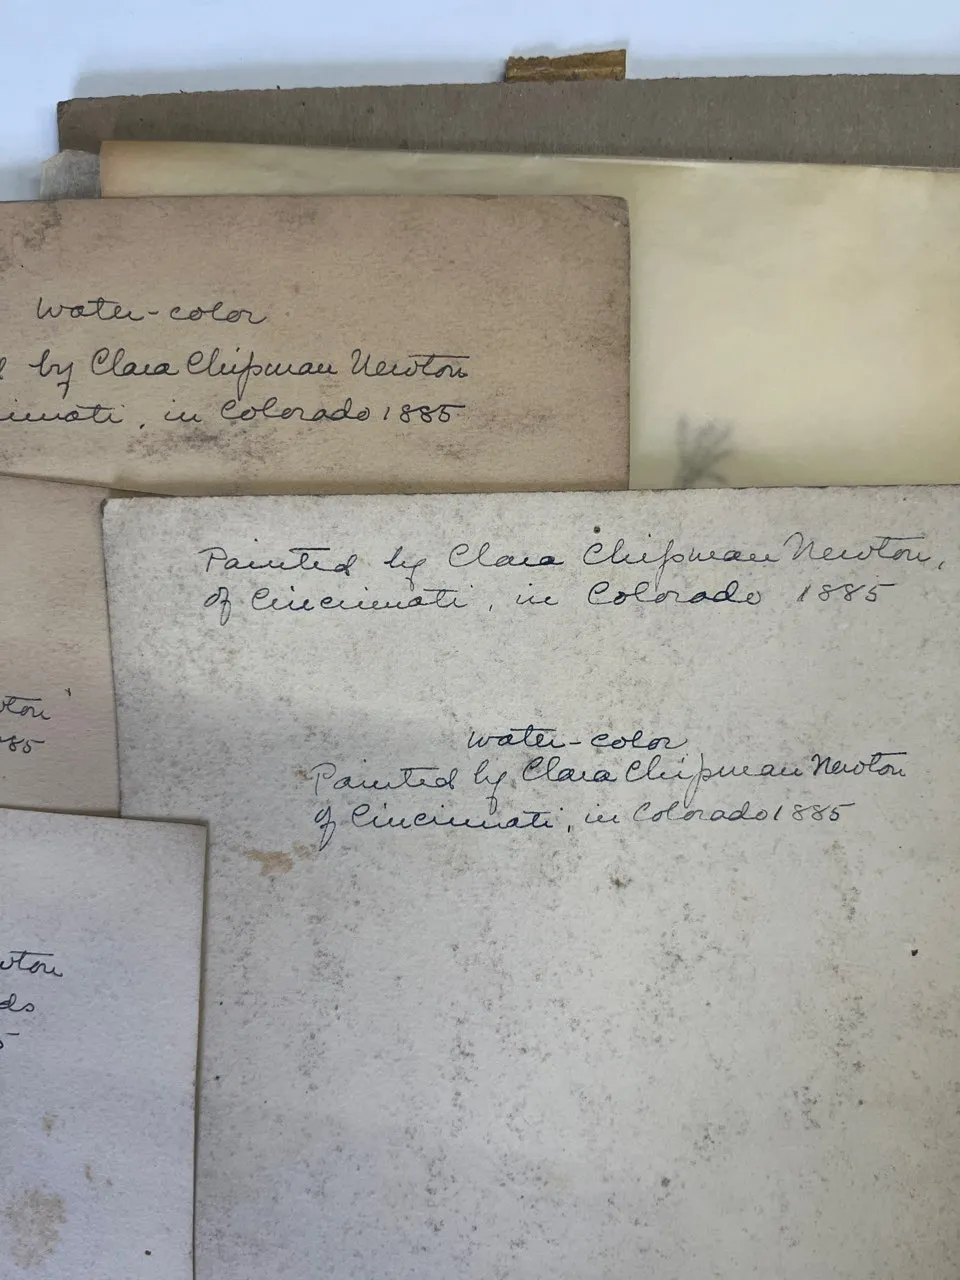 water-color
by Clara Chipman Newton
, in Colorado 1885
Painted by Clara Chipman Newton,
of Cincinnati, in Colorado 1885
water-color
Painted by Clara Chipman Newton
of Cincinnati, in Colorado 1885